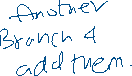 Another
Branch &
add them.